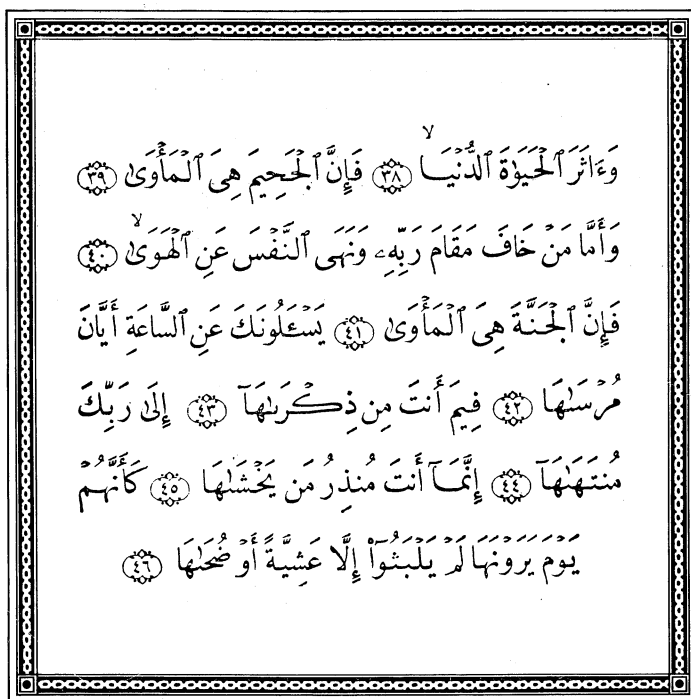 وَءَاثَرَ ٱلْحَيَوٰةَ ٱلدُّنْيَا ۙ ٣٨ فَإِنَّ ٱلْجَحِيمَ هِىَ ٱلْمَأْوَىٰ ٣٩
وَأَمَّا مَنْ خَافَ مَقَامَ رَبِّهِۦ وَنَهَى ٱلنَّفْسَ عَنِ ٱلْهَوَىٰ ۙ ٤٠
فَإِنَّ ٱلْجَنَّةَ هِىَ ٱلْمَأْوَىٰ ٤١ يَسْـَٔلُونَكَ عَنِ ٱلسَّاعَةِ أَيَّانَ
مُرْسَىٰهَا ٤٢ فِيمَ أَنتَ مِن ذِكْرَىٰهَآ ٤٣ إِلَىٰ رَبِّكَ
مُنتَهَىٰهَآ ٤٤ إِنَّمَآ أَنتَ مُنذِرُ مَن يَخْشَىٰهَا ٤٥ كَأَنَّهُمْ
يَوْمَ يَرَوْنَهَا لَمْ يَلْبَثُوٓا۟ إِلَّا عَشِيَّةً أَوْ ضُحَىٰهَا ٤٦